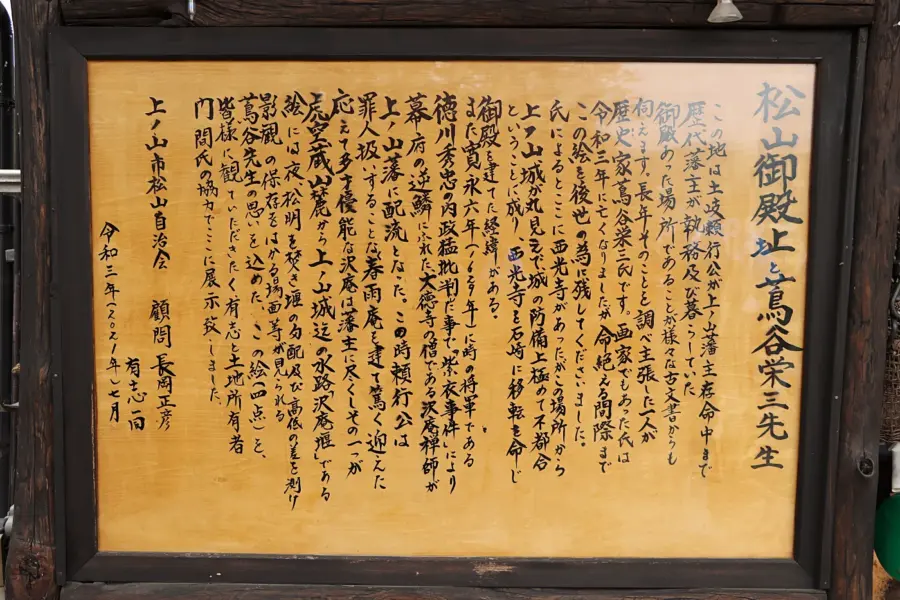 松山御殿址と蔦谷栄三先生
この地は土岐頼行公が上ノ山藩主存命中まで
歴代藩主が執務及び暮らしていた
御殿あった場所であることが様々な古文書からも
伺えます。長年そのことを調べ主張した一人が
歴史家蔦谷栄三氏です。画家でもあった氏は
令和三年に亡くなりましたが命絶える間際まで
この絵を後世の為に残してくださいました。
氏によるとここに西光寺があったがこの場所から
上ノ山城が丸見えで城の防備上極めて不都合
ということに成り、西光寺を石崎に移転を命じ
御殿を建てた経緯がある。
また寛永六年(1629年)に時の将軍である
徳川秀忠の内政猛批判だ事で「紫衣事件」により
幕府の逆鱗にふれた大徳寺の僧である沢庵禅師が
上ノ山藩に配流となった。この時頼行公は
罪人扱いすることなく春雨庵を建て篤く迎えた
応えて多才優能な沢庵は藩主に尽くしその一つが
虚空蔵山麓から上ノ山城迄の水路「沢庵堰」である
絵には夜松明を焚き堰の勾配及び高低の差を測り
景観の保存をはかる場面等が見られる
蔦谷先生の思いを込めた、この絵(四点)を、
皆様に観ていただきたく有志と土地所有者
門間氏の協力でここに展示致しました。
上ノ山市松山自治会 顧問 長岡正彦
有志一同
令和三年(2021年)七月